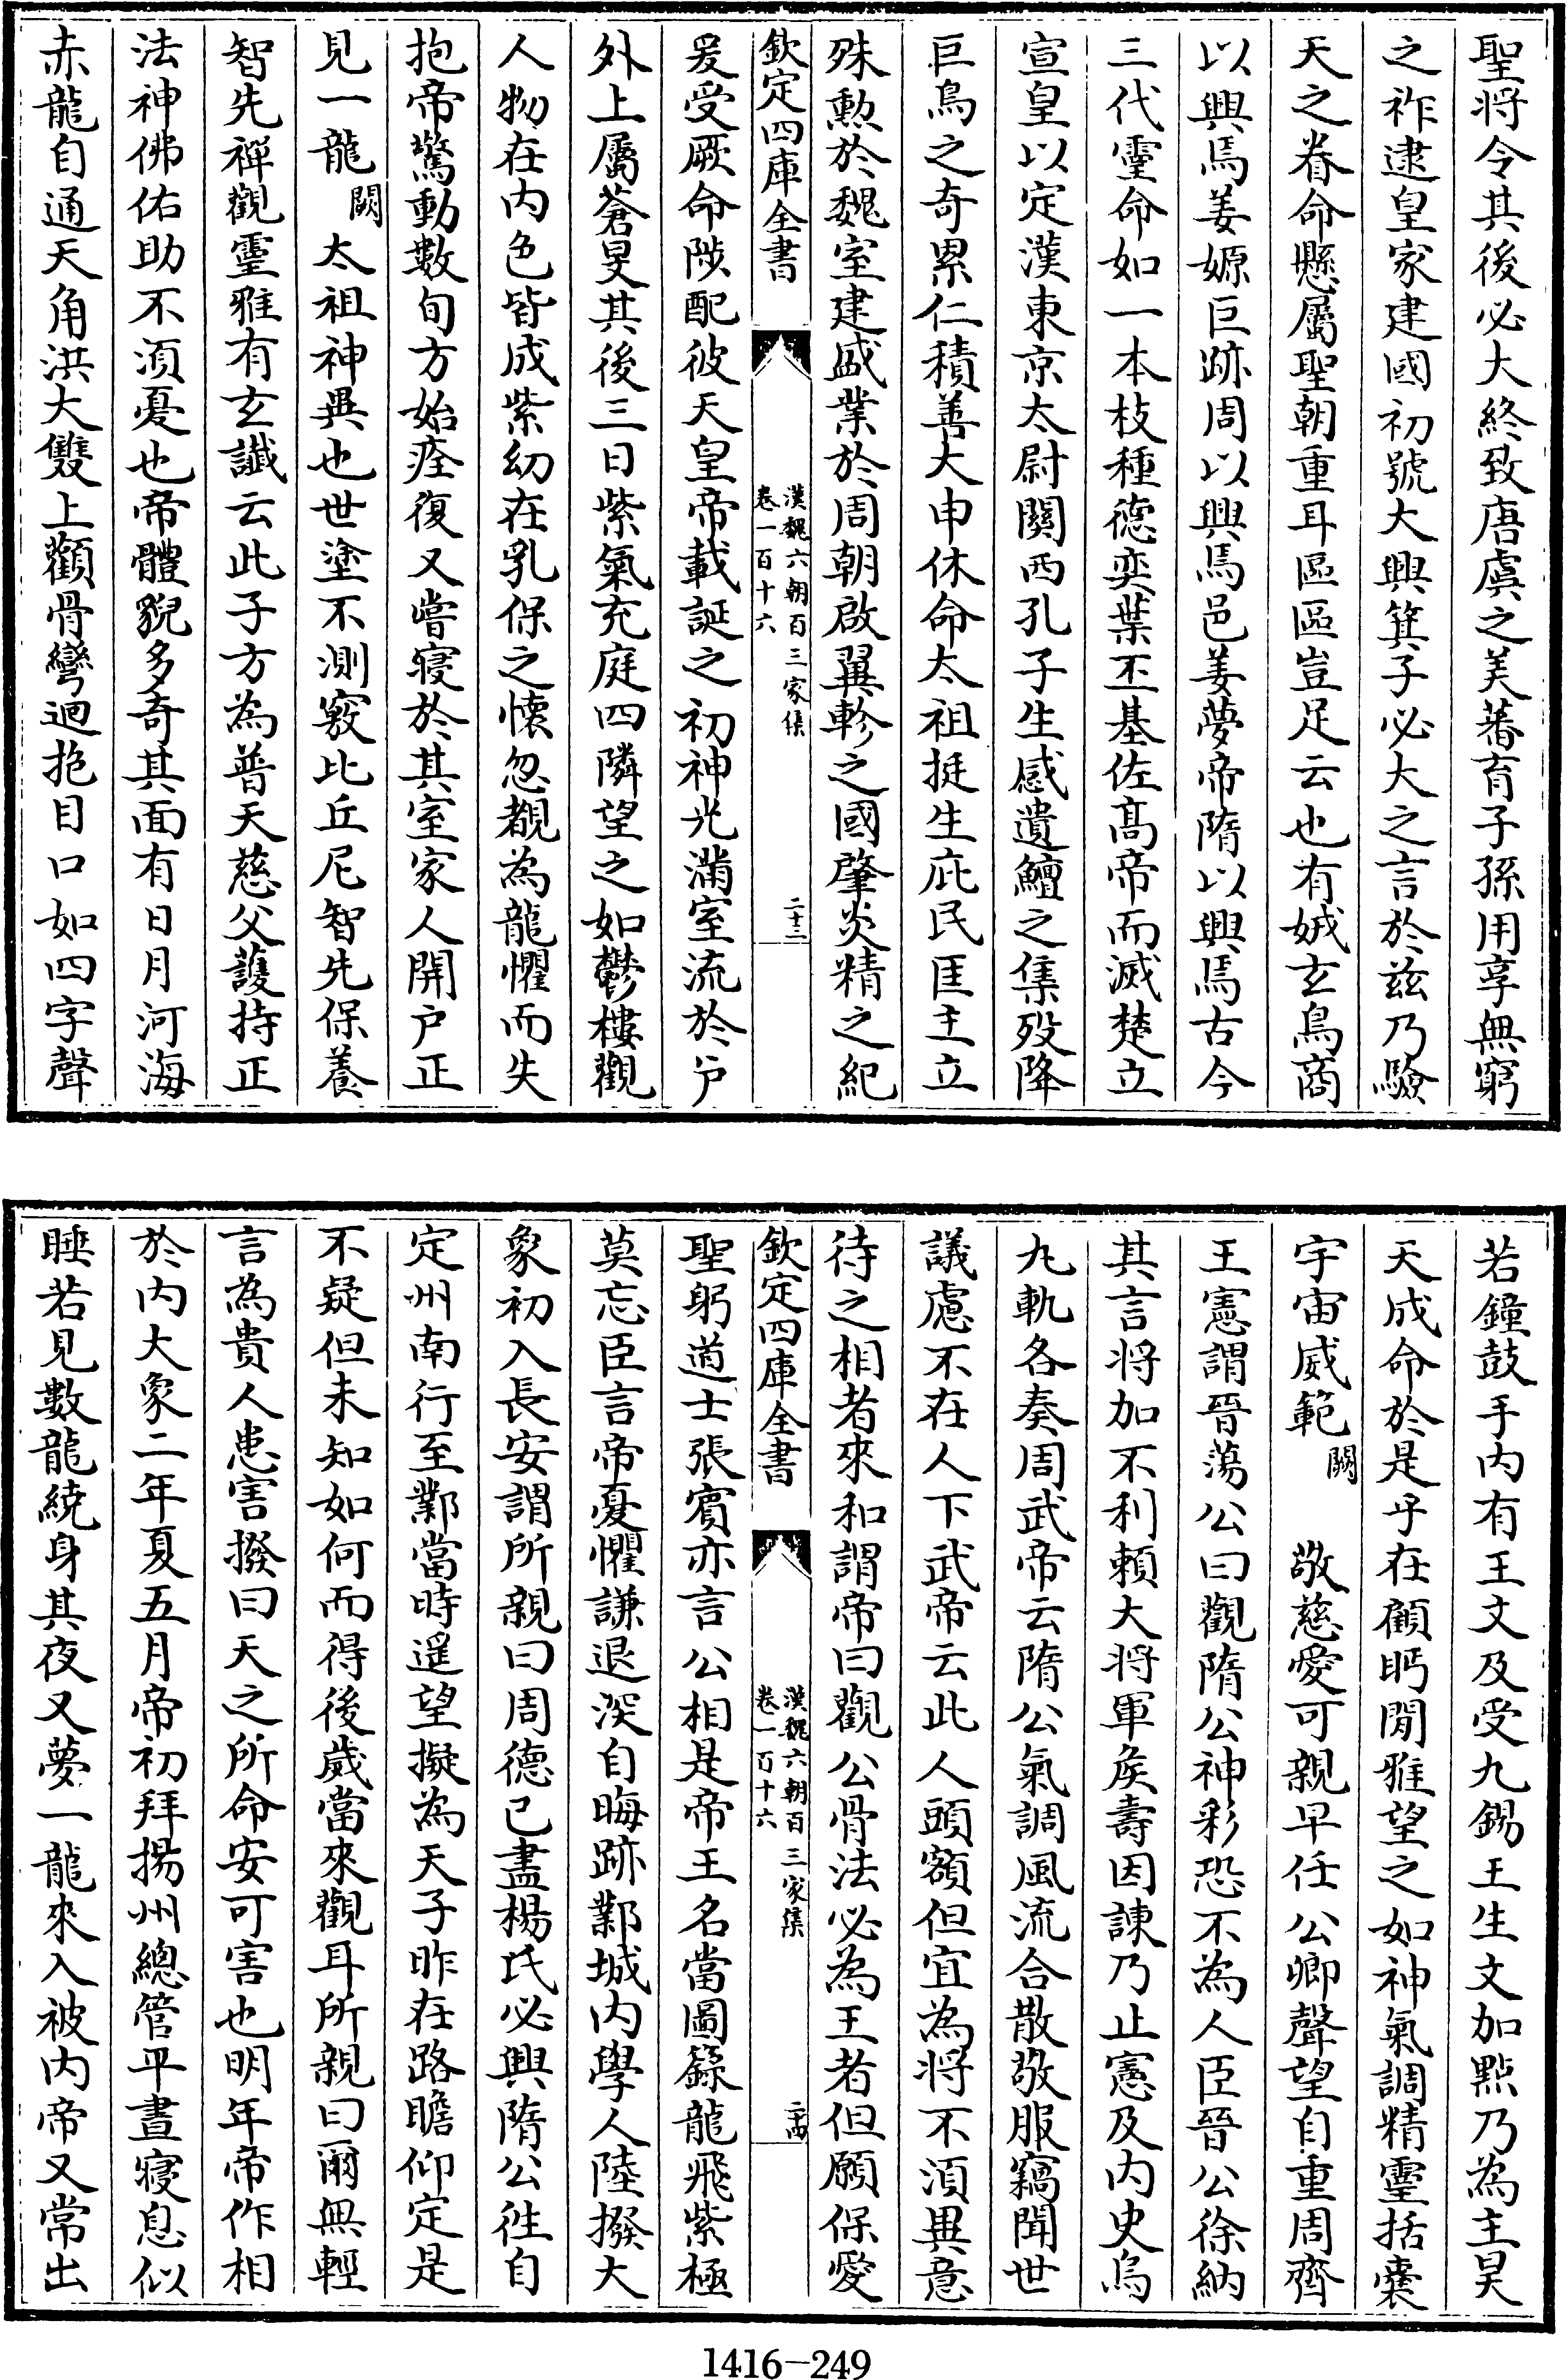 聖将令其後必大終致唐虞之美蕃育子孫用享無窮
之祚逮皇家建國初號大興箕子必大之言於兹乃驗
天之眷命懸屬聖朝重耳區區豈足云也有娀玄鳥商
以興焉姜嫄巨跡周以興焉邑姜夢帝隋以興焉古今
三代靈命如一本枝種德奕葉丕基佐髙帝而滅楚立
宣皇以定漢東京太尉關西孔子生感遺鱣之集殁降
巨鳥之奇累仁積善大申休命太祖挺生庇民匡主立
殊勲於魏室建盛業於周朝啟翼軫之國肇炎精之紀
欽定四庫全書
漢魏六朝百三家集
卷一百十六
二十三
爰受厥命陟配彼天皇帝載誕之初神光滿室流於户
外上屬蒼旻其後三日紫氣充庭四隣望之如鬱樓觀
人物在内色皆成紫幼在乳保之懐忽覩為龍懼而失
抱帝驚動數旬方始痊復又嘗寝於其室家人開户正
見一龍闕太祖神異也世塗不測竅比丘尼智先保養
智先禪觀靈雅有玄讖云此子方為普天慈父護持正
法神佛佑助不須憂也帝體貌多奇其面有日月河海
赤龍自通天角洪大雙上顴骨彎迴抱目口如四字聲
若鐘鼓手内有王文及受九錫王生文加點乃為主昊
天成命於是乎在顧眄閒雅望之如神氣調精靈括囊
宇宙威範闕敬慈愛可親早任公卿聲望自重周齊
王憲謂晉蕩公曰觀隋公神彩恐不為人臣晉公徐納
其言将加不利頼大将軍矦壽因諌乃止憲及内史烏
九軌各奏周武帝云隋公氣調風流合散敬服竊聞世
議慮不在人下武帝云此人頭額但宜為将不須異意
待之相者來和謂帝曰觀公骨法必為王者但願保愛
欽定四庫全書
漢魏六朝百三家集
卷一百十六
二十四
聖躬道士張賓亦言公相是帝王名當圖籙龍飛紫極
莫忘臣言帝憂懼謙退深自晦跡鄴城内學人陸撥大
象初入長安謂所親曰周德已盡楊氏必興隋公徃自
定州南行至鄴當時遥望擬為天子昨在路瞻仰定是
不疑但未知如何而得後歲當來觀耳所親曰爾無輕
言為貴人患害撥曰天之所命安可害也明年帝作相
於内大象二年夏五月帝初拜揚州總管平晝寝息似
睡若見數龍繞身其夜又夢一龍來入被内帝又常出
1416-249